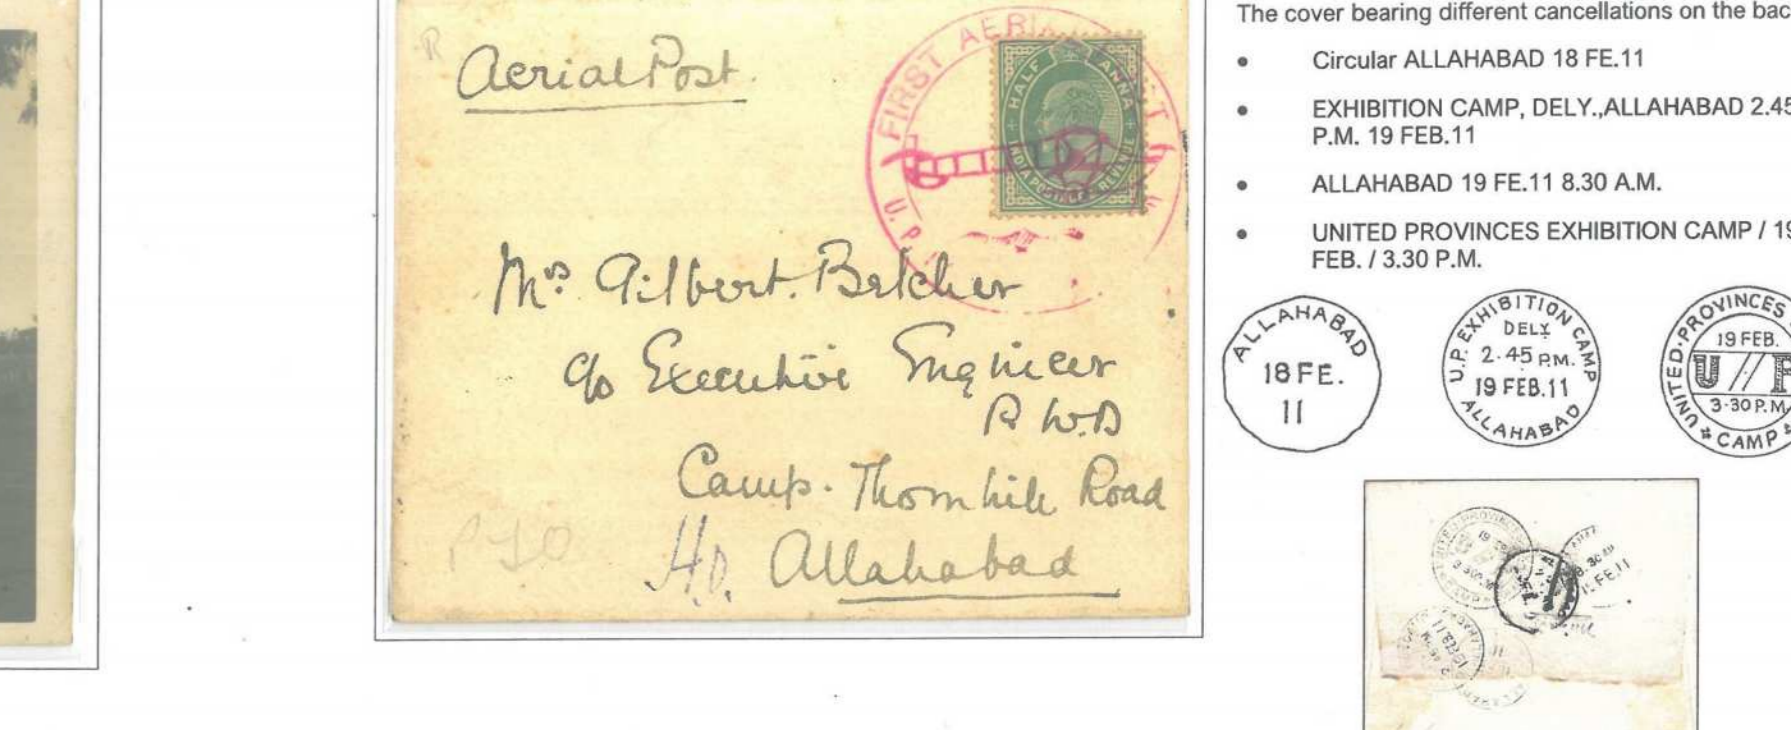 R
Aerial Post.
FIRST AERIAL POST
U. P.
HALF ANNA
INDIA POSTAGE & REVENUE
Mrs Gilbert. Belcher
c/o Executive Engineer
P.W.D
Camp. Thornhill Road
H.O. Allahabad
The cover bearing different cancellations on the bac
• Circular ALLAHABAD 18 FE.11
• EXHIBITION CAMP, DELY.,ALLAHABAD 2.45
P.M. 19 FEB.11
• ALLAHABAD 19 FE.11 8.30 A.M.
• UNITED PROVINCES EXHIBITION CAMP / 19
FEB. / 3.30 P.M.
ALLAHABAD
18 FE.
11
U.P. EXHIBITION CAMP
DELY
2.45 P.M.
19 FEB.11
ALLAHABAD
UNITED-PROVINCES
19 FEB.
U // P
3-30 P.M.
CAMP